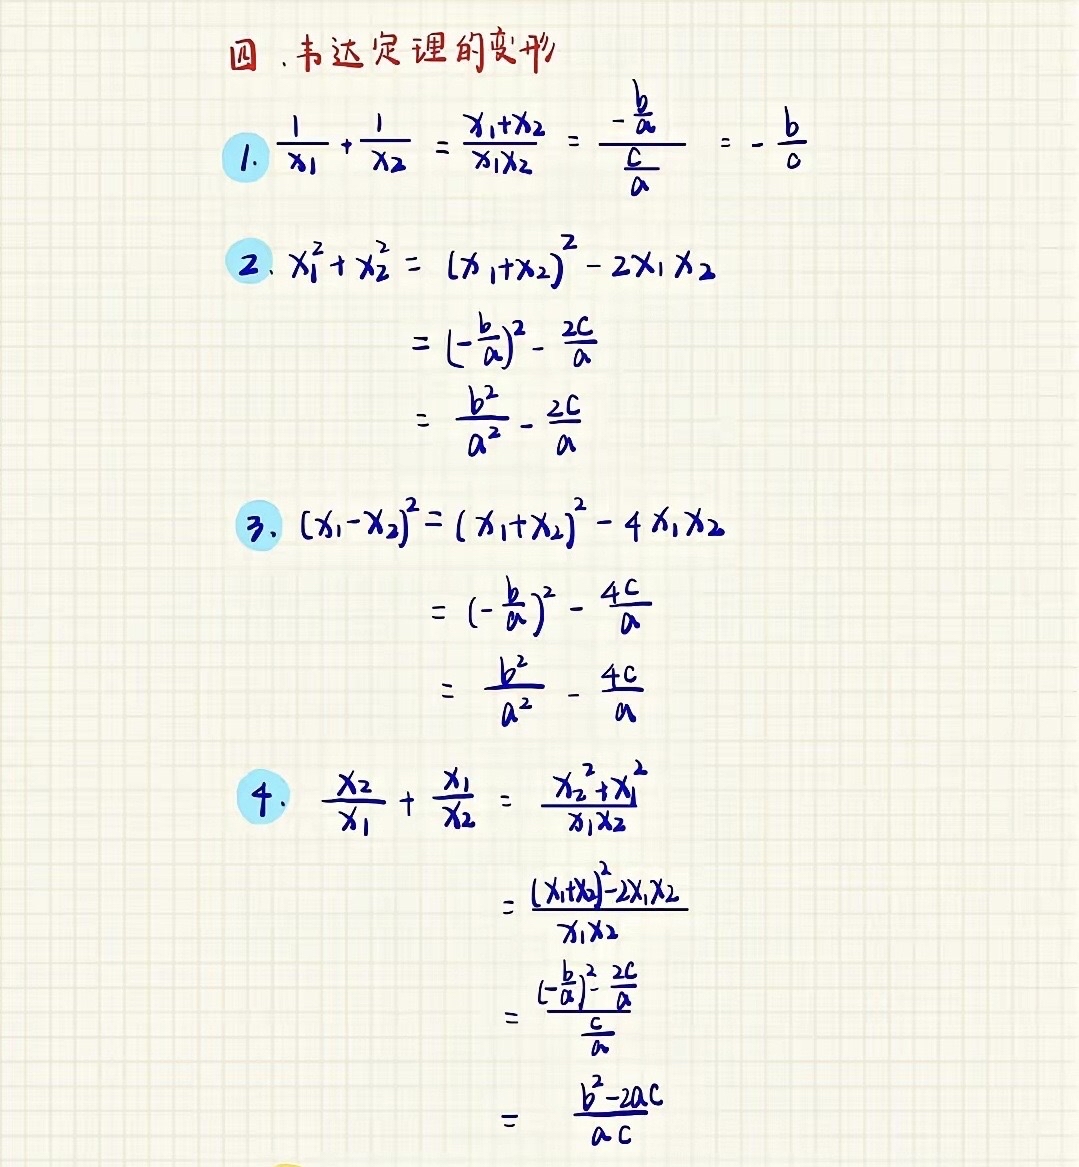 四、韦达定理的变形
1. 1/x₁ + 1/x₂ = (x₁+x₂)/(x₁x₂) = (-b/a)/(c/a) = -b/c
2、x₁² + x₂² = (x₁+x₂)² - 2x₁x₂
= (-b/a)² - 2c/a
= b²/a² - 2c/a
3. (x₁-x₂)² = (x₁+x₂)² - 4x₁x₂
= (-b/a)² - 4c/a
= b²/a² - 4c/a
4. x₂/x₁ + x₁/x₂ = (x₂²+x₁²)/(x₁x₂)
= ((x₁+x₂)²-2x₁x₂)/(x₁x₂)
= ((-b/a)² - 2c/a)/(c/a)
= (b²-2ac)/(ac)